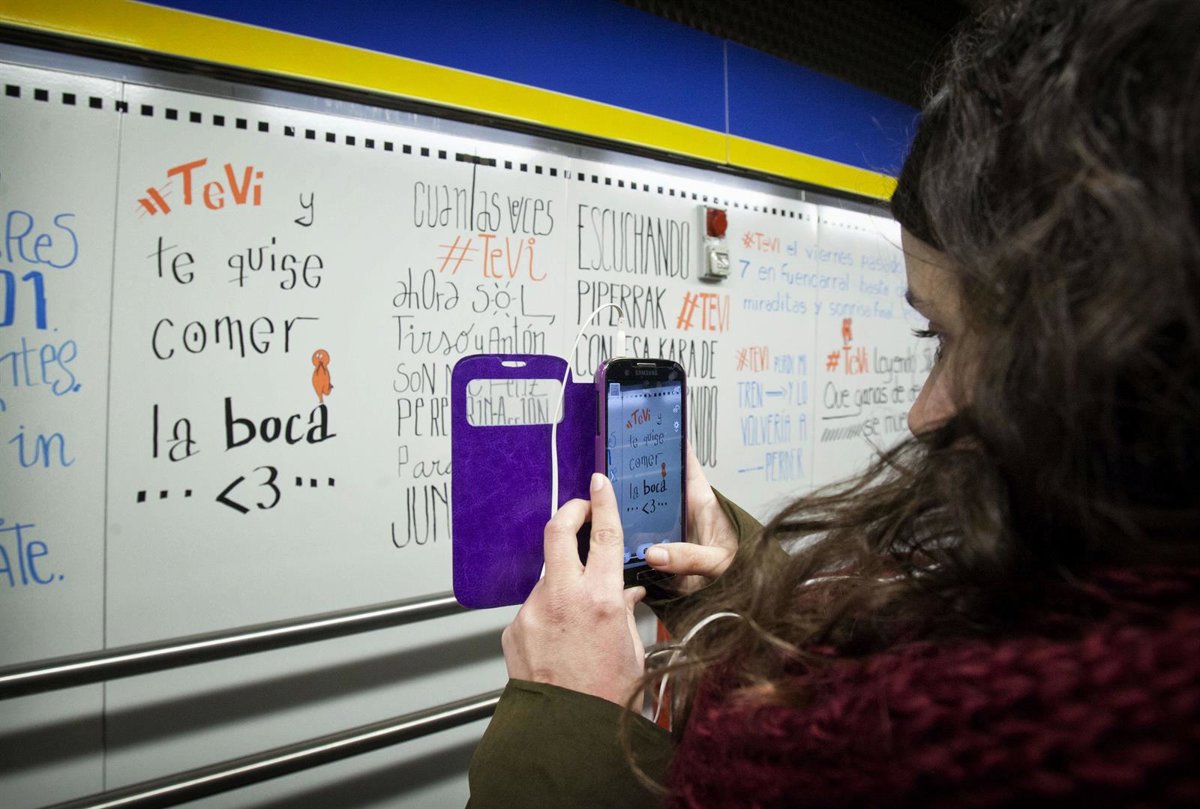 Res
01
ntes.
in
ate.
#TeVi y
te quise
comer
la boca
... <3 ...
cuantas veces
#TeVi
ahora SOL
Tirso y Antón
SON M
PERE
RIN-ACCIÓN
Para
JUN
ESCUCHANDO
PIPERRAK
#TEVI
CON ESA KARA DE
#TeVi el viernes pasado
7 en fuencarral hasta de
miraditas y sonrisa final
#TEVI PERDÍ MI
TREN → Y LO
VOLVERÍA A
PERDER
#TeVi leyendo
Que ganas de
se mue
SAMSUNG
#TeVi y
te quise
comer
la boca
... <3 ...